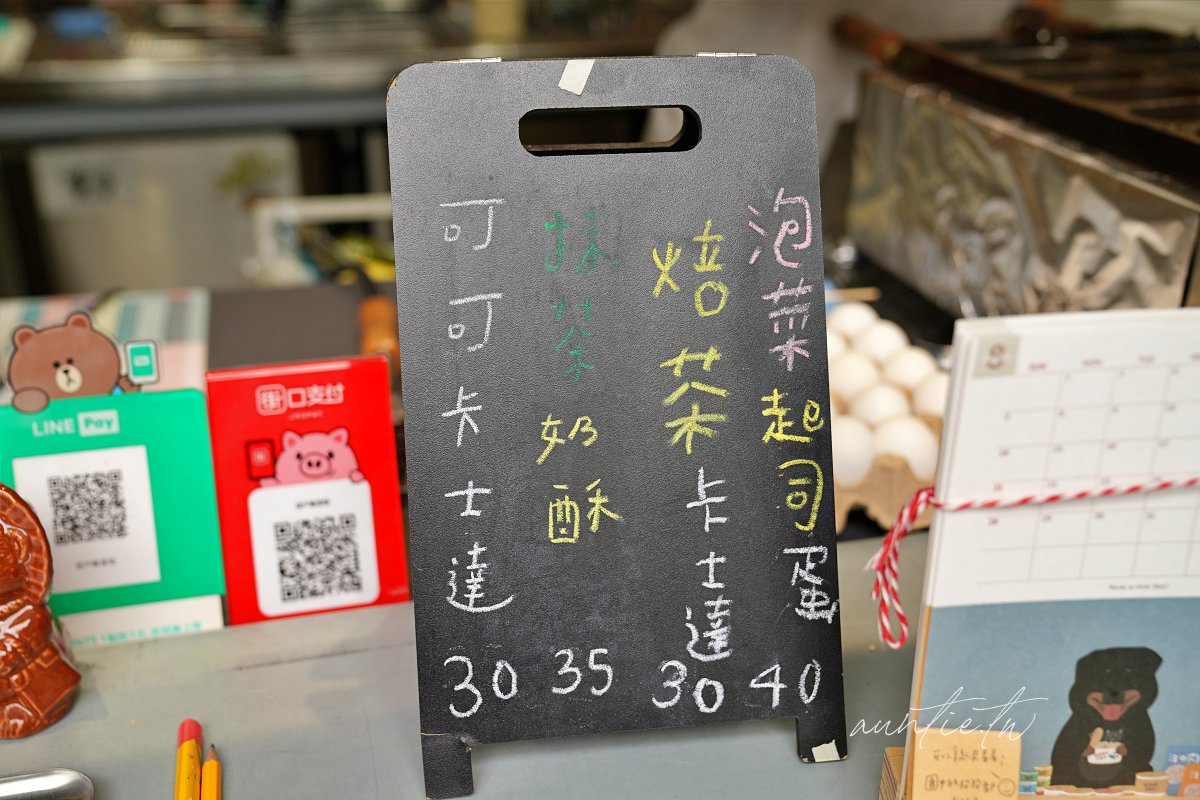 泡菜起司蛋 40
焙茶卡士達 30
抹茶奶酥 35
可可卡士達 30
LINE Pay
街口支付
auntie.tw